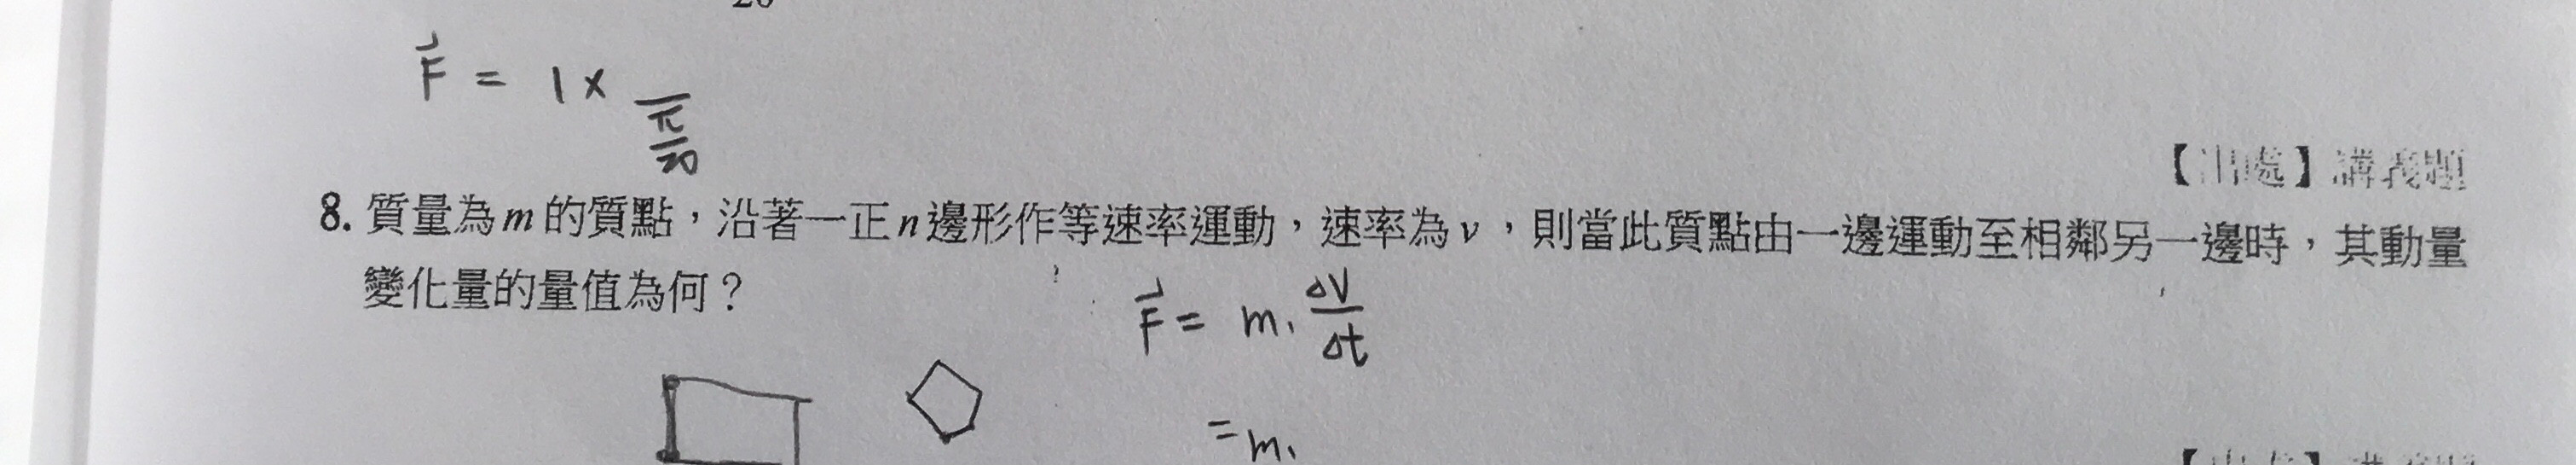 F⃗ = 1 ×
π
20
【出處】講義題
8. 質量為 m 的質點，沿著一正 n 邊形作等速率運動，速率為 v ，則當此質點由一邊運動至相鄰另一邊時，其動量
變化量的量值為何？
F⃗ = m. ΔV
Δt
= m.